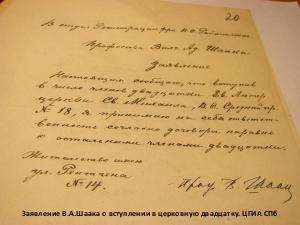 20
В отдел Регистрации при
Профессора Вил. Ад. Шаака
Заявление
Настоящим сообщаю, что вступив
в число членов двадцатки Ев. Лютер.
церкви Св. Михаила, В.О. Средний пр.
№ 18, я принимаю на себя ответст-
венность согласно договора наравне
с остальными членами двадцатки.
Жительство имею
ул. Рентгена
№ 14.
Проф. В. Шаак
Заявление В.А.Шаака о вступлении в церковную двадцатку. ЦГИА СПб